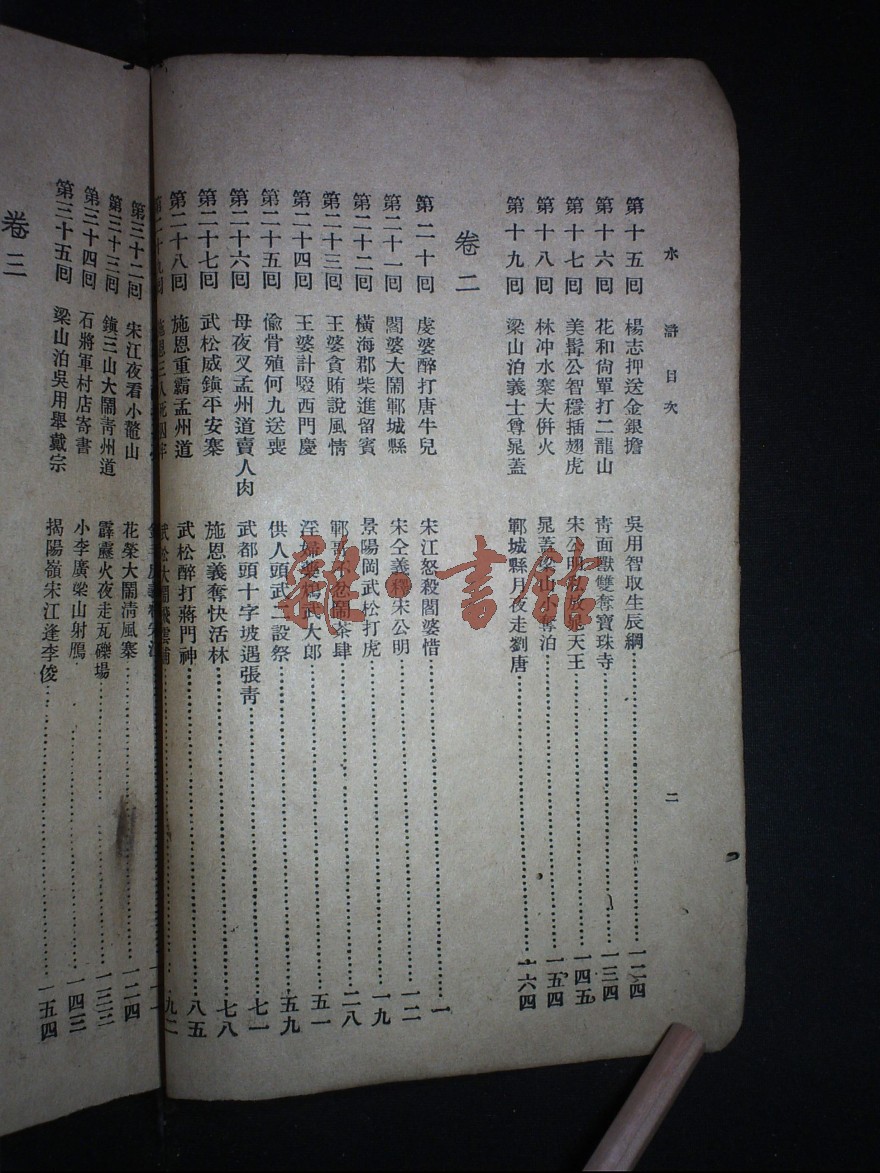 水滸目次 二
第十五回 楊志押送金銀擔 吳用智取生辰綱 一二四
第十六回 花和尙單打二龍山 靑面獸雙奪寶珠寺 一三四
第十七回 美髯公智穩插翅虎 宋公明私放晁天王 一四五
第十八回 林冲水寨大併火 晁蓋梁山小奪泊 一五四
第十九回 梁山泊義士尊晁蓋 鄆城縣月夜走劉唐 一六四
卷二
第二十回 虔婆醉打唐牛兒 宋江怒殺閻婆惜 一
第二十一回 閻婆大鬧鄆城縣 宋仝義釋宋公明 一二
第二十二回 橫海郡柴進留賓 景陽岡武松打虎 一九
第二十三回 王婆貪賄說風情 鄆哥不忿鬧茶肆 二八
第二十四回 王婆計啜西門慶 淫婦藥鴆武大郎 五一
第二十五回 偸骨殖何九送喪 供人頭武二設祭 五九
第二十六回 母夜叉孟州道賣人肉 武都頭十字坡遇張靑 七一
第二十七回 武松威鎭平安寨 施恩義奪快活林 七八
第二十八回 施恩重霸孟州道 武松醉打蔣門神 八五
第二十九回 施恩三入死囚牢 武松大鬧飛雲浦 九二
第三十二回 宋江夜看小鰲山 花榮大鬧淸風寨 一二四
第三十三回 鎭三山大鬧靑州道 霹靂火夜走瓦礫場 一三二
第三十四回 石將軍村店寄書 小李廣梁山射鴈 一四三
第三十五回 梁山泊吳用舉戴宗 揭陽嶺宋江逢李俊 一五四
卷三
雜·書館